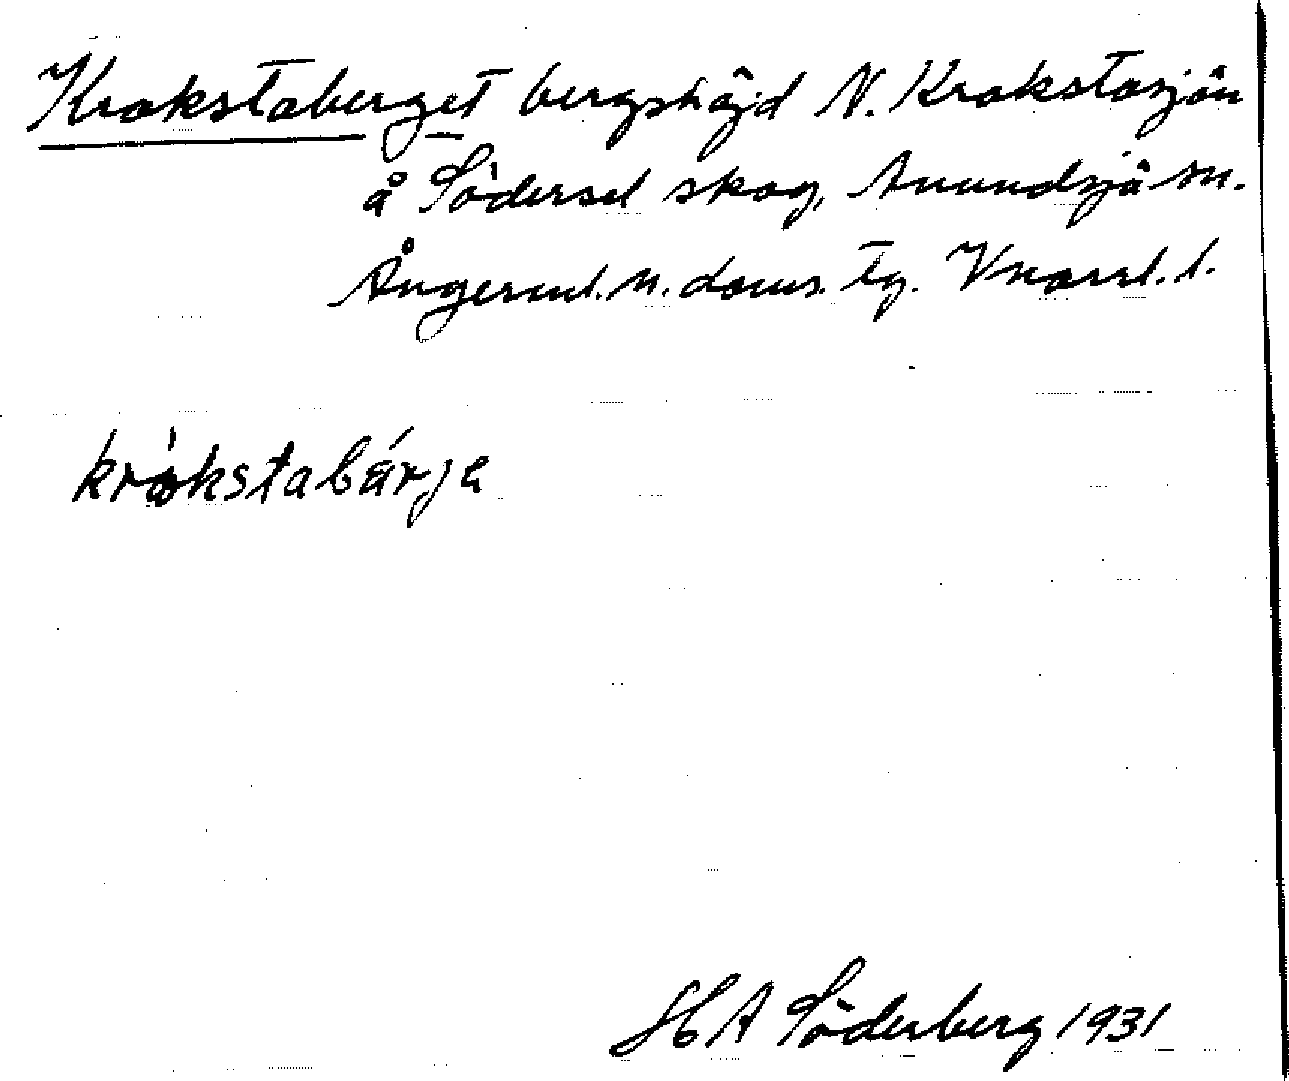 Krokstaberget bergshöjd N. Krokstasjön
å Södersel skog, Anundsjö sn.
Ångerml. n. doms. tg. Vnorrl. l.
kråkstabárje
HA Söderberg 1931